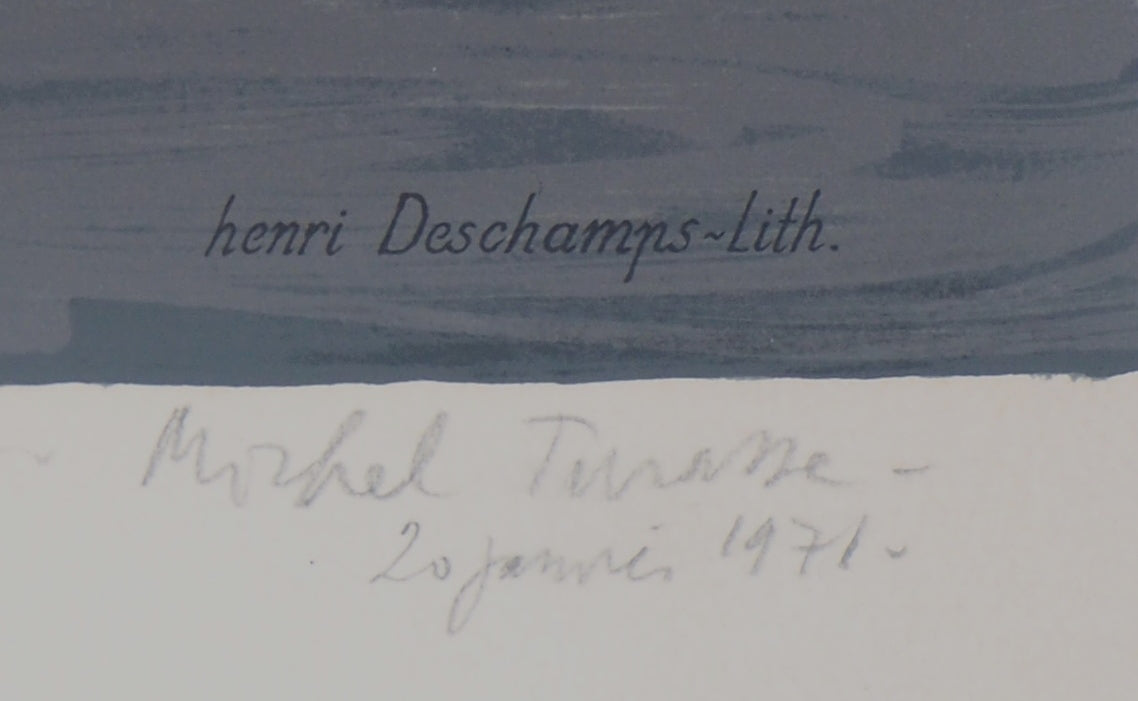 henri Deschamps~Lith.
Michel Turasse -
20 janvier 1971 -